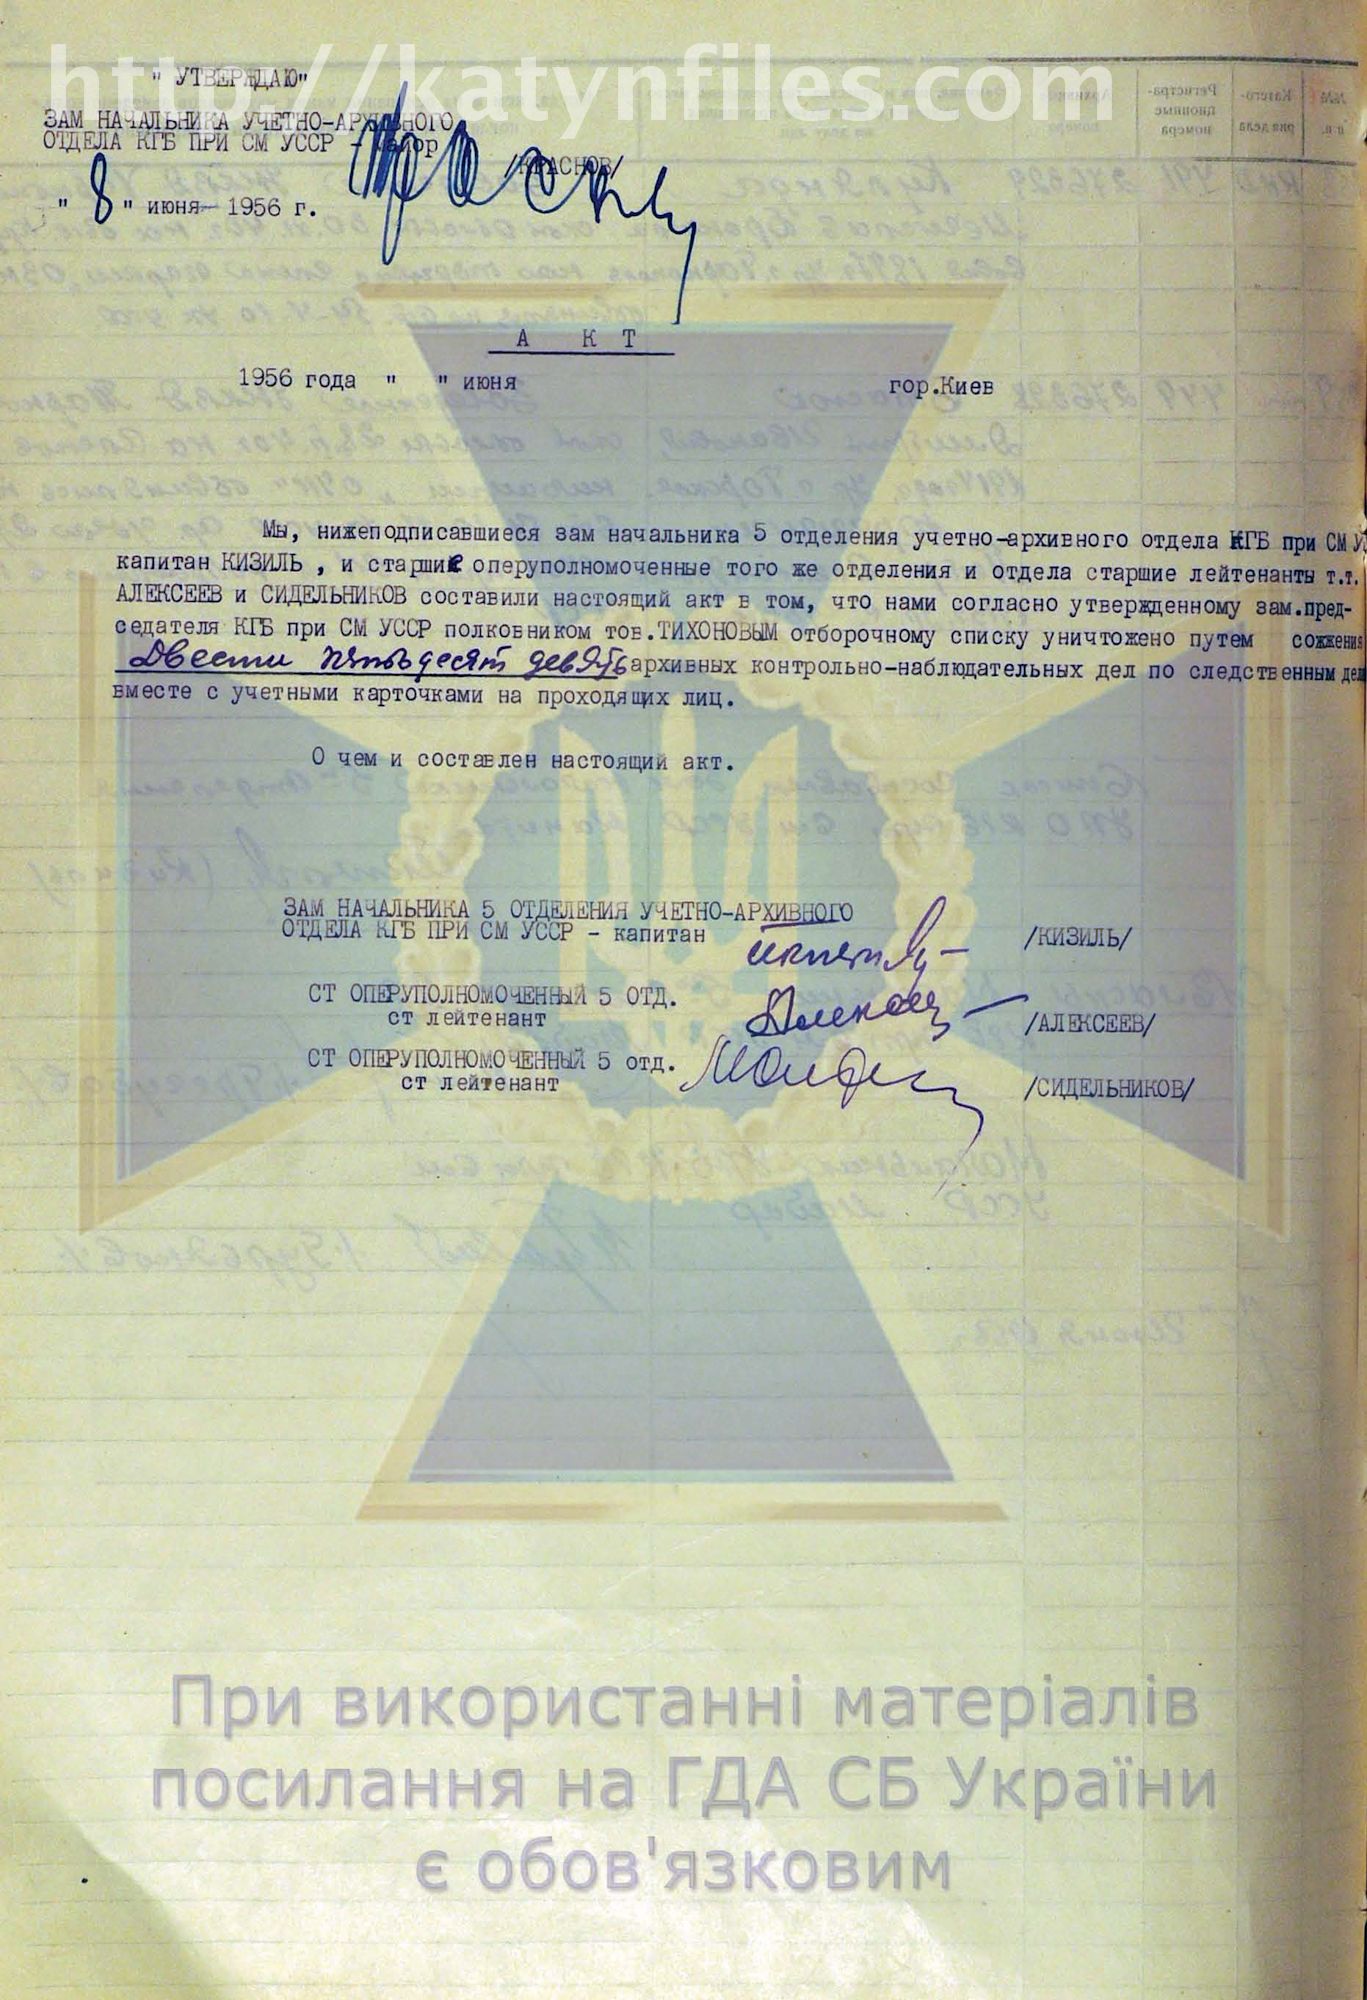 http://katynfiles.com
" УТВЕРЖДАЮ"
ЗАМ НАЧАЛЬНИКА УЧЕТНО-АРХИВНОГО
ОТДЕЛА КГБ ПРИ СМ УССР - майор
/КРАСНОВ/
" 8 " июня 1956 г.
А К Т
1956 года " " июня гор.Киев
Мы, нижеподписавшиеся зам начальника 5 отделения учетно-архивного отдела КГБ при СМ У
капитан КИЗИЛЬ , и старшие оперуполномоченные того же отделения и отдела старшие лейтенанты т.т.
АЛЕКСЕЕВ и СИДЕЛЬНИКОВ составили настоящий акт в том, что нами согласно утвержденному зам.пред-
седателя КГБ при СМ УССР полковником тов.ТИХОНОВЫМ отборочному списку уничтожено путем сожжения
Двести пятьдесят девять архивных контрольно-наблюдательных дел по следственным дел
вместе с учетными карточками на проходящих лиц.
О чем и составлен настоящий акт.
ЗАМ НАЧАЛЬНИКА 5 ОТДЕЛЕНИЯ УЧЕТНО-АРХИВНОГО
ОТДЕЛА КГБ ПРИ СМ УССР - капитан /КИЗИЛЬ/
СТ ОПЕРУПОЛНОМОЧЕННЫЙ 5 ОТД.
ст лейтенант /АЛЕКСЕЕВ/
СТ ОПЕРУПОЛНОМОЧЕННЫЙ 5 отд.
ст лейтенант /СИДЕЛЬНИКОВ/
При використанні матеріалів
посилання на ГДА СБ України
є обов'язковим